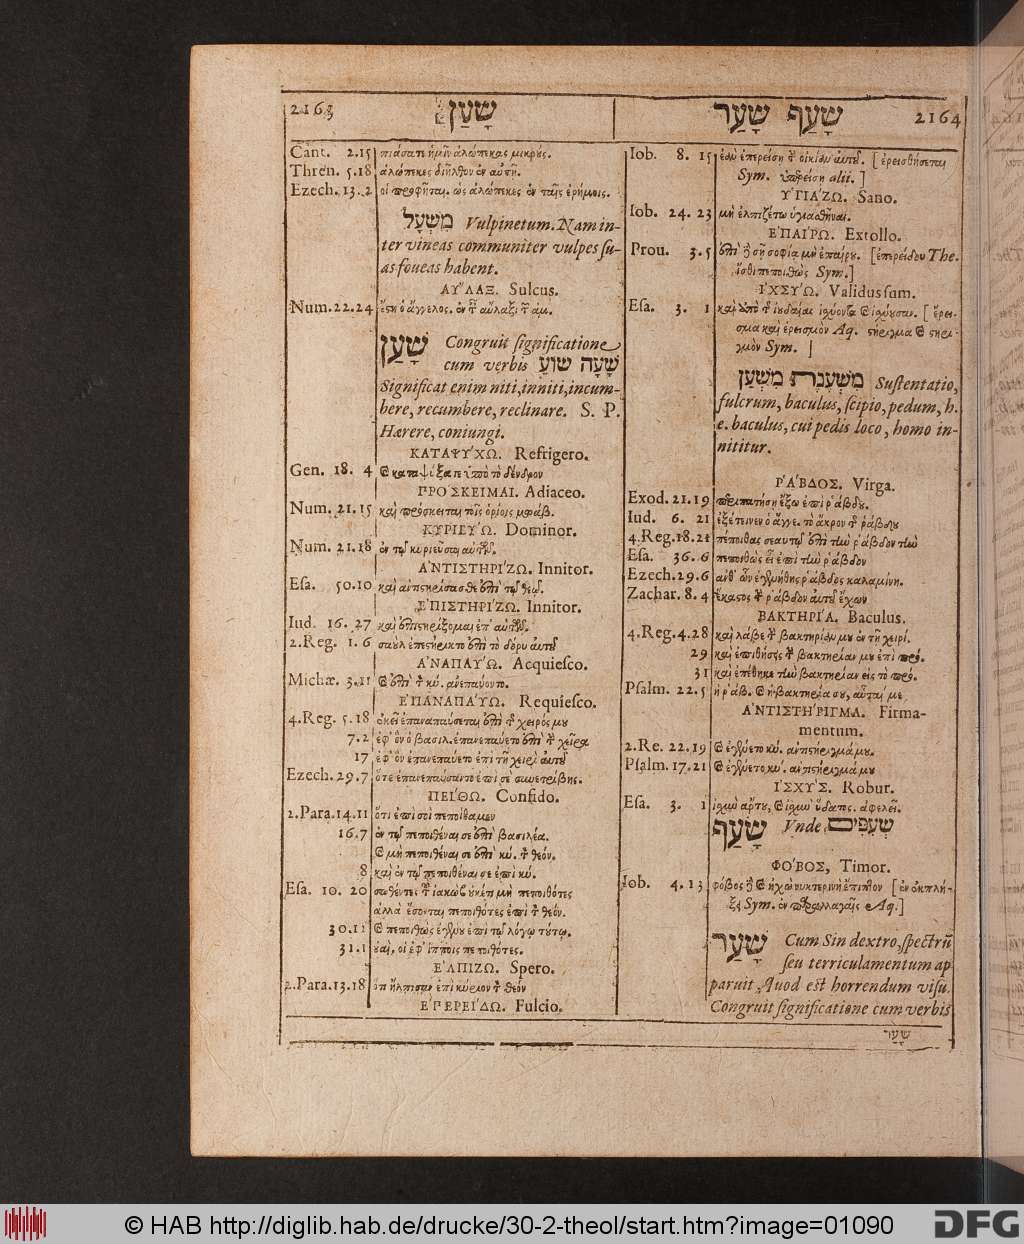 2163 שָׁעַן
Cant. 2.15 πιάσατε ἡμῖν ἀλώπεκας μικρὺς.
Thren. 5.18 ἀλώπεκες διῆλθον ἐν αὐτῇ.
Ezech. 13. 2 οἱ προφῆται. ὡς ἀλώπεκες ἐν ταῖς ἐρήμοις.
מִשְׁעָל Vulpinetum. Nam in-
ter vineas communiter vulpes su-
as foueas habent.
ΑΥ῏ΛΑΞ. Sulcus.
Num. 22.24 ἔστη ὁ ἄγγελος. ἐν τῇ αὔλαξι τῇ ἀμ.
שָׁעַן Congruit significatione
cum verbis שָׁעָה שׁוּעַ
Significat enim niti, inniti, incum-
bere, recumbere, reclinare. S. P.
Hærere, coniungi.
ΚΑΤΑΨΥ΄ΧΩ. Refrigero.
Gen. 18. 4 ϗ καταψίξατε ὑπὸ τὸ δένδρον
ΠΡΟ΄ΣΚΕΙΜΑΙ. Adiaceo.
Num. 21.15 καὶ πρόσκειται τοῖς ὁρίοις μωάβ.
ΚΥΡΙΕΥ΄Ω. Dominor.
Num. 21.18 ἐν τῷ κυριεῦσαι αὐτῶν.
Α᾿ΝΤΙΣΤΗΡΙ΄ΖΩ. Innitor.
Esa. 50.10 καὶ ἀντιστηρίσασθε ἐπὶ τῷ θεῷ.
Ε᾿ΠΙΣΤΗΡΙ΄ΖΩ. Innitor.
Iud. 16. 27 καὶ ἐπιστηρίξομαι ἐπ' αὐτῶν.
2.Reg. 1. 6 σαοὺλ ἐπεστήρικτο ἐπὶ τὸ δόρυ αὐτοῦ
Α᾿ΝΑΠΑΥ΄Ω. Acquiesco.
Michæ. 3.11 ϗ ἐπὶ τὸν κύ. ἀνεπαύοντο.
Ε᾿ΠΑΝΑΠΑΥ΄Ω. Requiesco.
4.Reg. 5.18 ἐκεῖ ἐπαναπαύσεται ἐπὶ τῆς χειρός μου
7.2 ἐφ' ὃν ὁ βασιλ. ἐπανεπαύετο ἐπὶ τὴν χεῖρα
17 ἐφ' ὃν ἐπανεπαύετο ἐπὶ τῇ χειρὶ αὐτοῦ
Ezech. 29.7 ὅτε ἐπανεπαύσαντο ἐπὶ σὲ συνετρίβης.
ΠΕΙ΄ΘΩ. Confido.
2.Para. 14.11 ὅτι ἐπὶ σοὶ πεποίθαμεν
16.7 ἐν τῷ πεποιθέναι σε ἐπὶ βασιλέα.
ϗ μὴ πεποιθέναι σε ἐπὶ κύ. τὸν θεόν.
8 καὶ ἐν τῷ πεποιθέναι σε ἐπὶ κύ.
Esa. 10. 20 σωθέντες τοῦ ἰακὼβ οὐκέτι μὴ πεποιθότες
ἀλλὰ ἔσονται πεποιθότες ἐπὶ τὸν θεόν.
30.12 ϗ πεποιθὼς ἐγένου ἐπὶ τῷ λόγῳ τούτῳ.
31.1 οὐαὶ, οἱ ἐφ' ἵπποις πεποιθότες.
Ε᾿ΛΠΙ΄ΖΩ. Spero.
2.Para. 13.18 ὅτι ἤλπισαν ἐπὶ κύριον τὸν θεόν
Ε᾿ΡΕΡΕΙ΄ΔΩ. Fulcio.
שָׁעַף שָׁעַר 2164
Iob. 8. 15 ἐὰν ὑπερείσῃ τὴν οἰκίαν αὐτοῦ. [ἐρεισθήσεται
Sym. ὑπερείσῃ alii.]
Υ῾ΓΙΑ΄ΖΩ. Sano.
Iob. 24. 23 μὴ ἐλπιζέτω ὑγιασθῆναι.
Ε᾿ΠΑΙ΄ΡΩ. Extollo.
Prou. 3.5 ἐπὶ δὲ σῇ σοφίᾳ μὴ ἐπαίρου. [ἐπερείδου The.
ἴσθι πεποιθὼς Sym.]
Ι᾿ΧΣΥ΄Ω. Validus sum.
Esa. 3. 1 καὶ ἀπὸ τῆς ἰουδαίας ἰσχύοντα ϗ ἰσχύουσαν. [ἔρει-
σμα καὶ ἐρεισμὸν Aq. στήριγμα ϗ στηρι-
γμὸν Sym. ]
מִשְׁעֶנֶת מִשְׁעָן Sustentatio,
fulcrum, baculus, scipio, pedum, h.
e. baculus, cui pedis loco, homo in-
nititur.
Ρ῾Α΄ΒΔΟΣ. Virga.
Exod. 21.19 περιπατήσῃ ἔξω ἐπὶ ῥάβδου.
Iud. 6. 21 ἐξέτεινεν ὁ ἄγγε. τὸ ἄκρον τῆς ῥάβδου
4.Reg. 18.21 πέποιθας σεαυτῷ ἐπὶ τὴν ῥάβδον τὴν
Esa. 36.6 πεποιθὼς εἶ ἐπὶ τὴν ῥάβδον
Ezech. 29.6 ἀνθ' ὧν ἐγενήθης ῥάβδος καλαμίνη.
Zachar. 8.4 ἕκαστος τὴν ῥάβδον αὐτοῦ ἔχων
ΒΑΚΤΗΡΙ΄Α. Baculus.
4.Reg. 4.28 καὶ λάβε τὴν βακτηρίαν μου ἐν τῇ χειρί.
29 καὶ ἐπιθήσεις τὴν βακτηρίαν μου ἐπὶ πρό.
31 καὶ ἐπέθηκε τὴν βακτηρίαν εἰς τὸ πρό.
Psalm. 22.5 ἡ ῥάβ. ϗ ἡ βακτηρία σου, αὗταί με
Α᾿ΝΤΙΣΤΗ΄ΡΙΓΜΑ. Firma-
mentum.
2.Re. 22.19 ϗ ἐγένετο κύ. ἀντιστήριγμά μου.
Psalm. 17.21 ϗ ἐγένετο κύ. ἀντιστήριγμά μου
Ι᾿ΣΧΥ΄Σ. Robur.
Esa. 3. 1 ἰσχὺν ἄρτου, ϗ ἰσχὺν ὕδατος. ἀφελεῖ.
שָׁעַף Vnde, שְׂעִפִּים
ΦΟ΄ΒΟΣ, Timor.
Iob. 4. 13 φόβος δὲ ϗ ἠχὼ νυκτερινὴ ἐπῖπτον [ἐν ἐκπλή-
ξει Sym. ἐν παραλλαγαῖς Aq.]
שָׁעַר Cum Sin dextro, spectrũ
seu terriculamentum ap
paruit, Quod est horrendum visu.
Congruit significatione cum verbis
שָׁעַר
© HAB http://diglib.hab.de/drucke/30-2-theol/start.htm?image=01090 DFG